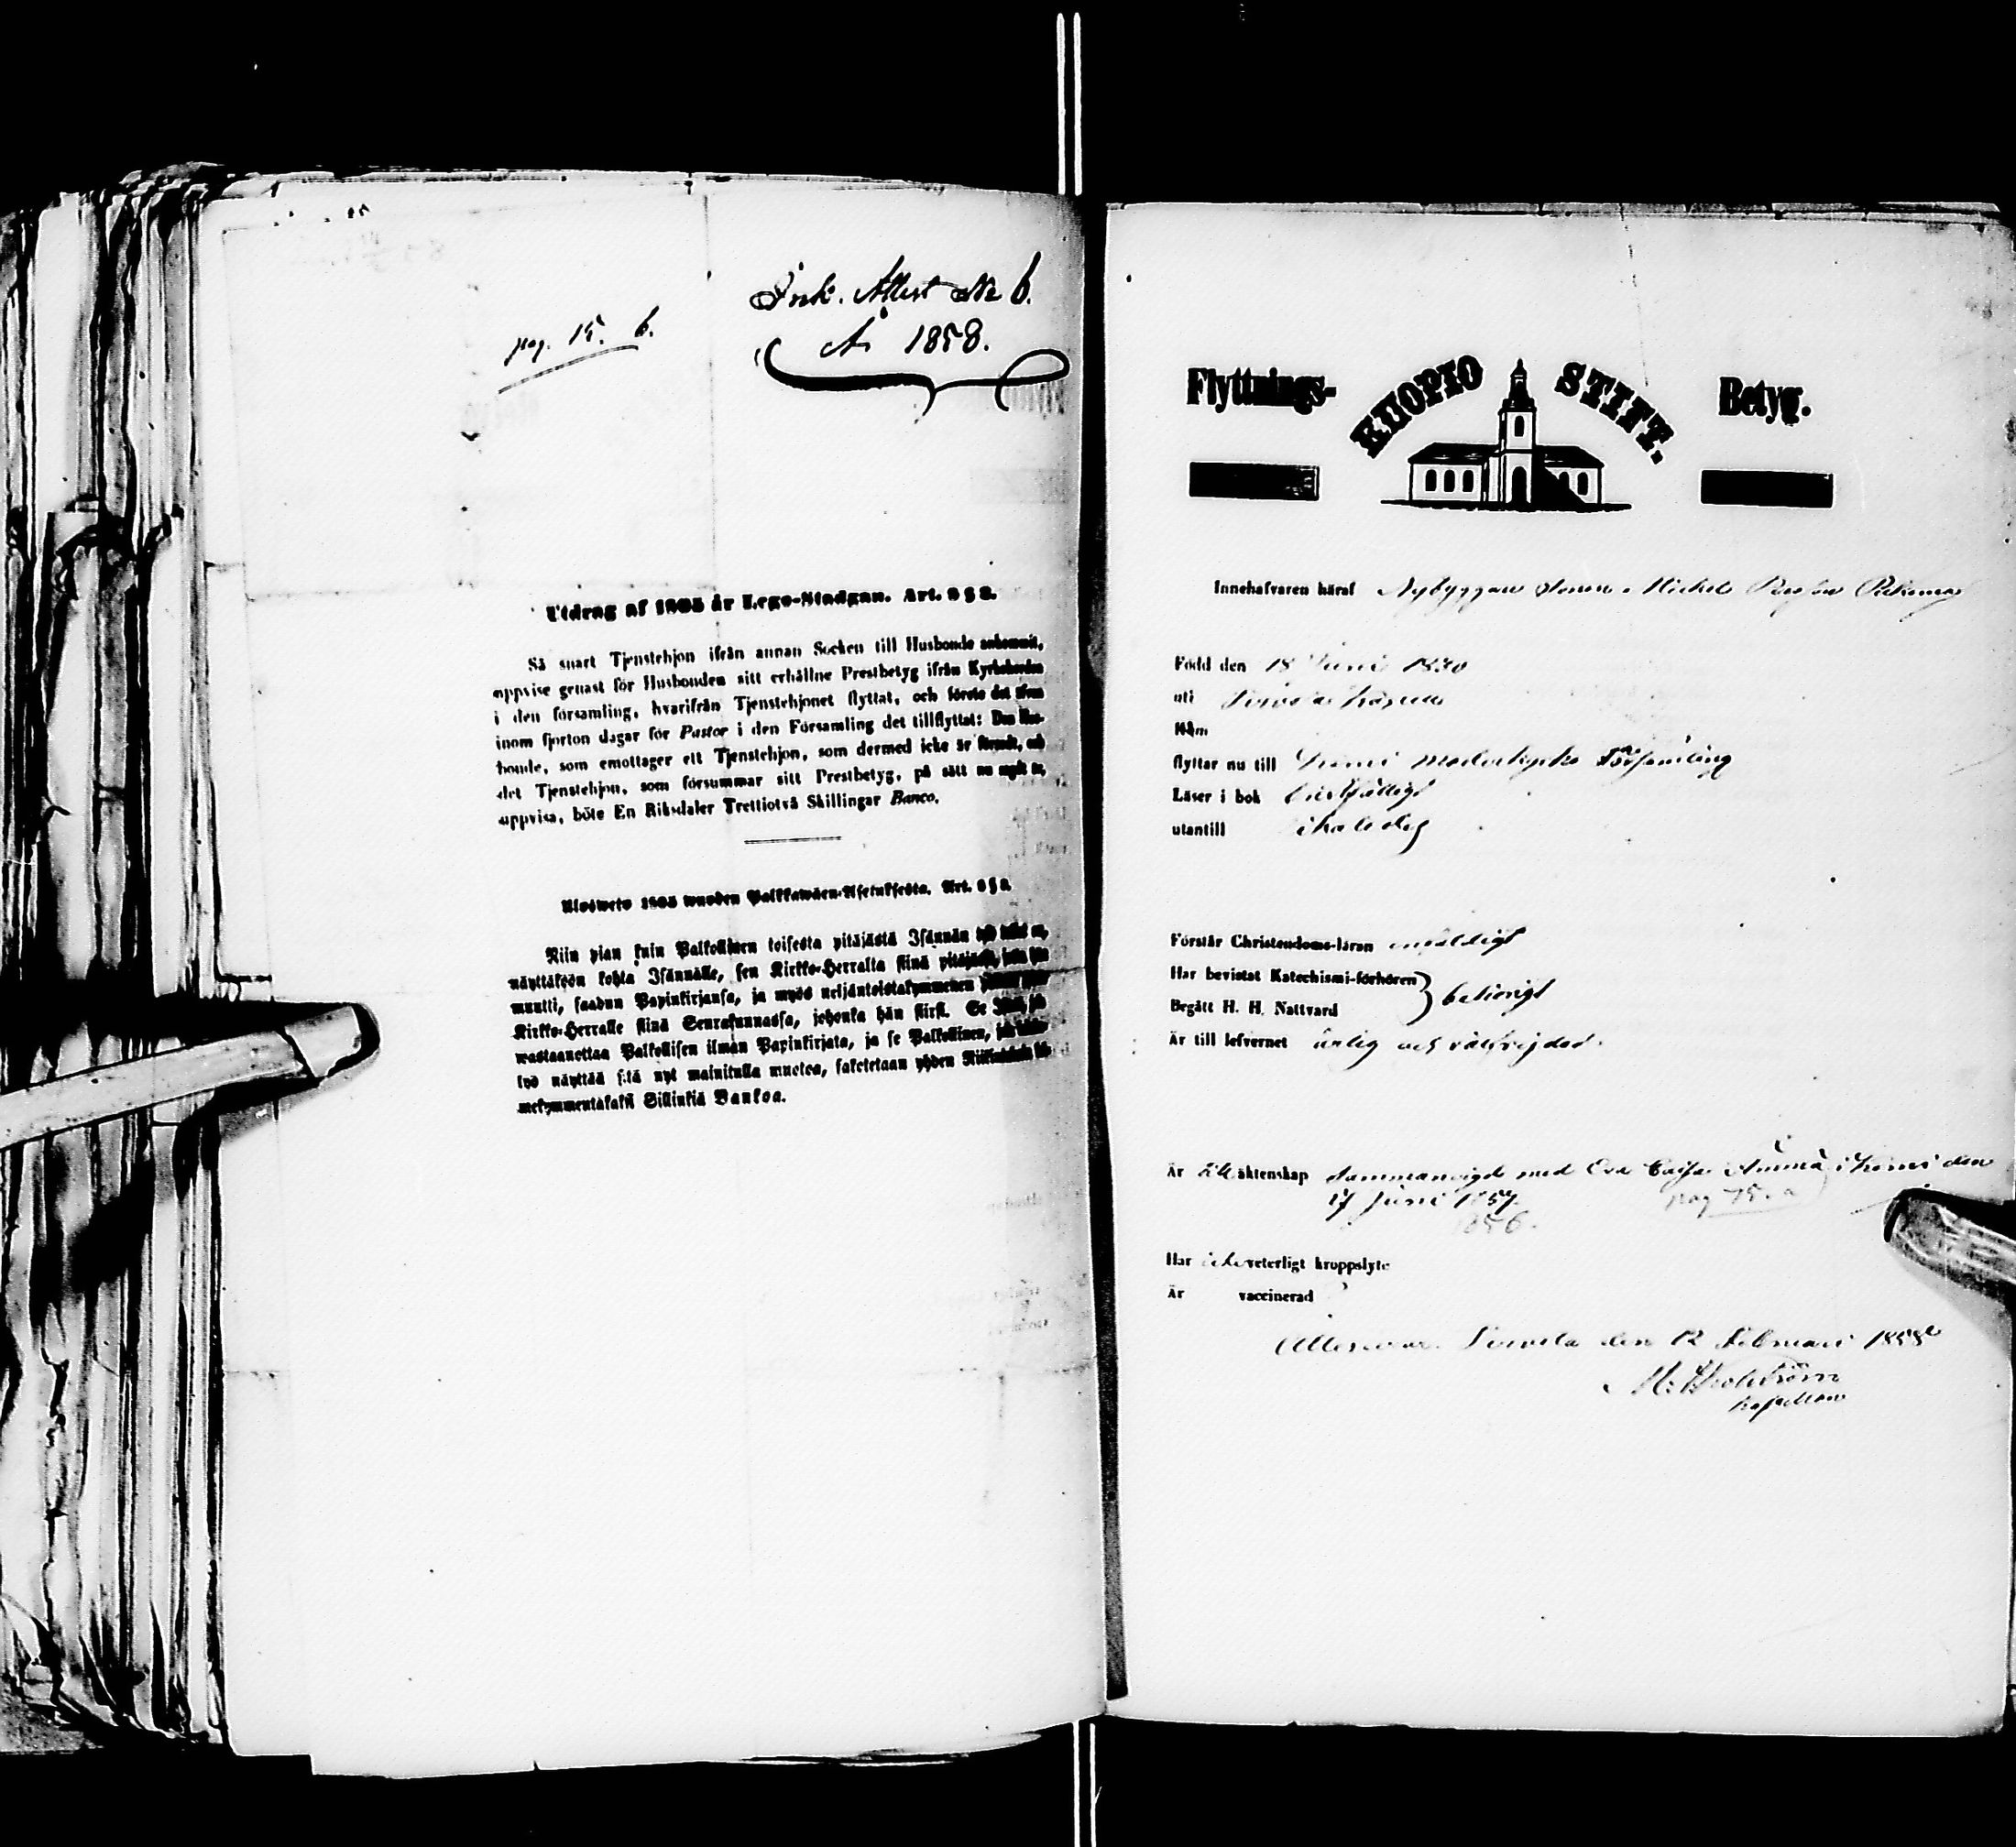 Ink. Attest No 6.
År 1858.
pag. 15. b.
Utdrag af 1805 år Lego-Stadgan. Art. 6 § 2.
Så snart Tjenstehjon ifrån annan Socken till Husbonde ankommit,
uppvise genast för Husbonden sitt erhållne Prestbetyg ifrån Kyrkoherden
i den församling, hvarifrån Tjenstehjonet flyttat, och förete det äfven
inom fjorton dagar för Pastor i den Församling det tillflyttat: Den Hus-
bonde, som emottager ett Tjenstehjon, som dermed icke är försedt, och
det Tjenstehjon, som försummar sitt Prestbetyg, på sätt nu sagdt är,
uppvisa, böte En Riksdaler Trettiotvå Skillingar Banco.
Ulosweto 1805 wuoden Palkkawäen-Asetuksesta. Art. 6 §
Niin pian kuin Palkollinen toisesta pitäjästä Isännän
näyttäköön kohta Isännälle, sen Kirkko-Herralta siinä pitäjässä, josta hän
muutti, saadun Papinkirjansa, ja myös neljäntoistakymmenen
Kirkko-Herralle siinä Seurakunnassa, johonka hän siirsi. Se
wastaanottaa Palkollisen ilman Papinkirjata, ja se Palkollinen,
lyö näyttää sitä nyt mainitulla muotoa, saketetaan yhden
mekymmentäkaksi Sillinkiä Bankoa.
Flyttnings- KUOPIO STIFT. Betyg.
Innehafvaren häraf Nybyggare sonen Michel
Född den 18 Juni 1830
uti
flyttar nu till Kemi moderkyrko Församling
Läser i bok försvarligt
utantill
Förstår Christendoms-läran enfaldigt
Har bevistat Katechismi-förhören
Begått H. H. Nattvard behörigt
Är till lefvernet ärlig och
Är till äktenskap sammanvigd med Eva Caisa i Kemi den
17 Juni 1857.
pag 75. a
1856.
Har icke veterligt kroppslyte
Är vaccinerad
Attesterar. den 12 Februari 1858
Kapellan